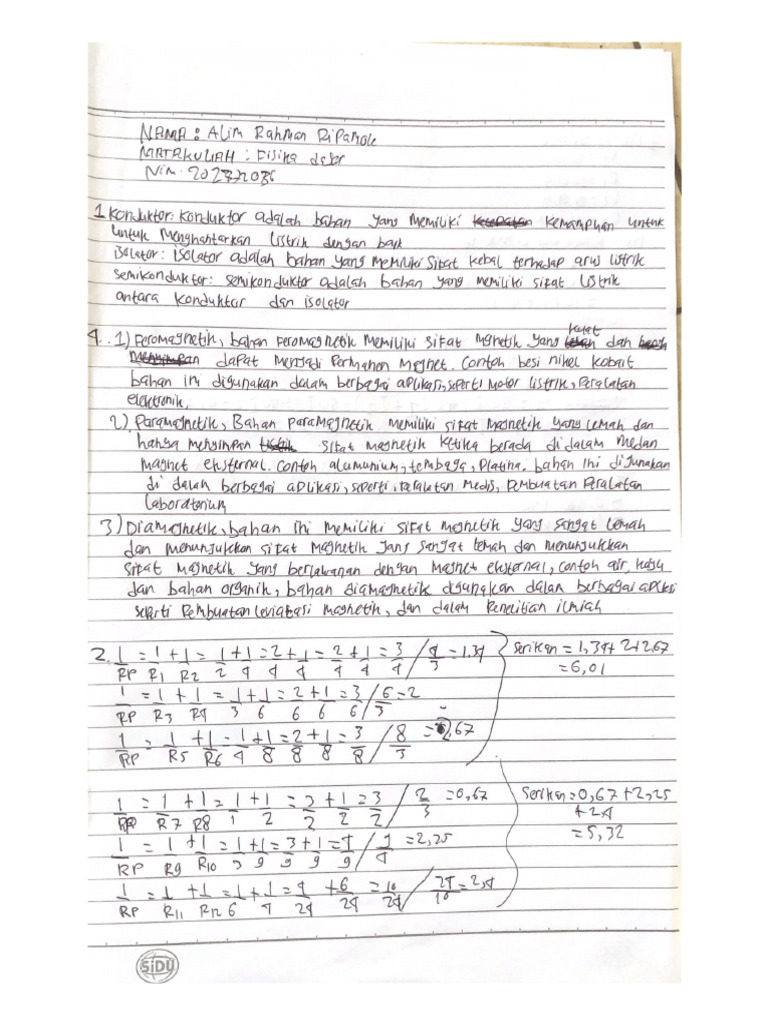 NAMA: Alim Rahman Ripamole
MATAKULIAH: Fisika dasar
Nim.
1 Konduktor: Konduktor adalah bahan yang memiliki kemampuan untuk
untuk Menghantarkan listrik dengan baik
isolator: isolator adalah bahan yang memiliki sifat kebal terhadap arus listrik
semikonduktor: semikonduktor adalah bahan yang memiliki sifat listrik
antara konduktor dan isolator
4. 1) Feromagnetik, bahan feromagnetik memiliki sifat mgnetik yang kuat dan
dapat menjadi permanen magnet. Contoh besi nikel kobalt
bahan ini digunakan dalam berbagai aplikasi, seperti motor listrik, peralatan
elektronik.
2) Paramagnetik, Bahan paramagnetik memiliki sifat magnetik yang lemah dan
hanya menyimpan sifat magnetik ketika berada di dalam medan
magnet eksternal. Contoh alumunium, tembaga, platina. bahan ini digunakan
di dalah berbagai aplikasi, seperti, peralatan medis, pembuatan peralatan
laboratorium
3) Diamagnetik, bahan ini memiliki sifat magnetik yang sangat lemah
dan menunjukkan sifat magnetik yang sangat lemah dan menunjukkan
sifat magnetik yang berlawanan dengan magnet eksternal, contoh air, kayu
dan bahan organik, bahan diamagnetik digunakan dalan berbagai aplikasi
seperti pembuatan leviatasi magnetik, dan dalam penelitian ilmiah
2. 1/RP = 1/R1 + 1/R2 = 1/2 + 1/4 = 2/4 + 1/4 = 2+1/4 = 3/4 / 4/3 = 1,34
Serikan = 1,34 + 2 + 2,67
= 6,01
1/RP = 1/R3 + 1/R4 = 1/3 + 1/6 = 2/6 + 1/6 = 3/6 / 6/3 = 2
1/RP = 1/R5 + 1/R6 = 1/4 + 1/8 = 2/8 + 1/8 = 3/8 / 8/3 = 2,67
1/RP = 1/R7 + 1/R8 = 1/1 + 1/2 = 2/2 + 1/2 = 3/2 / 2/3 = 0,67
Serikan = 0,67 + 2,25
+ 2,4
= 5,32
1/RP = 1/R9 + 1/R10 = 1/3 + 1/9 = 3/9 + 1/9 = 4/9 / 9/4 = 2,25
1/RP = 1/R11 + 1/R12 = 1/6 + 1/4 = 4/24 + 6/24 = 10/24 / 24/10 = 2,4
SiDU